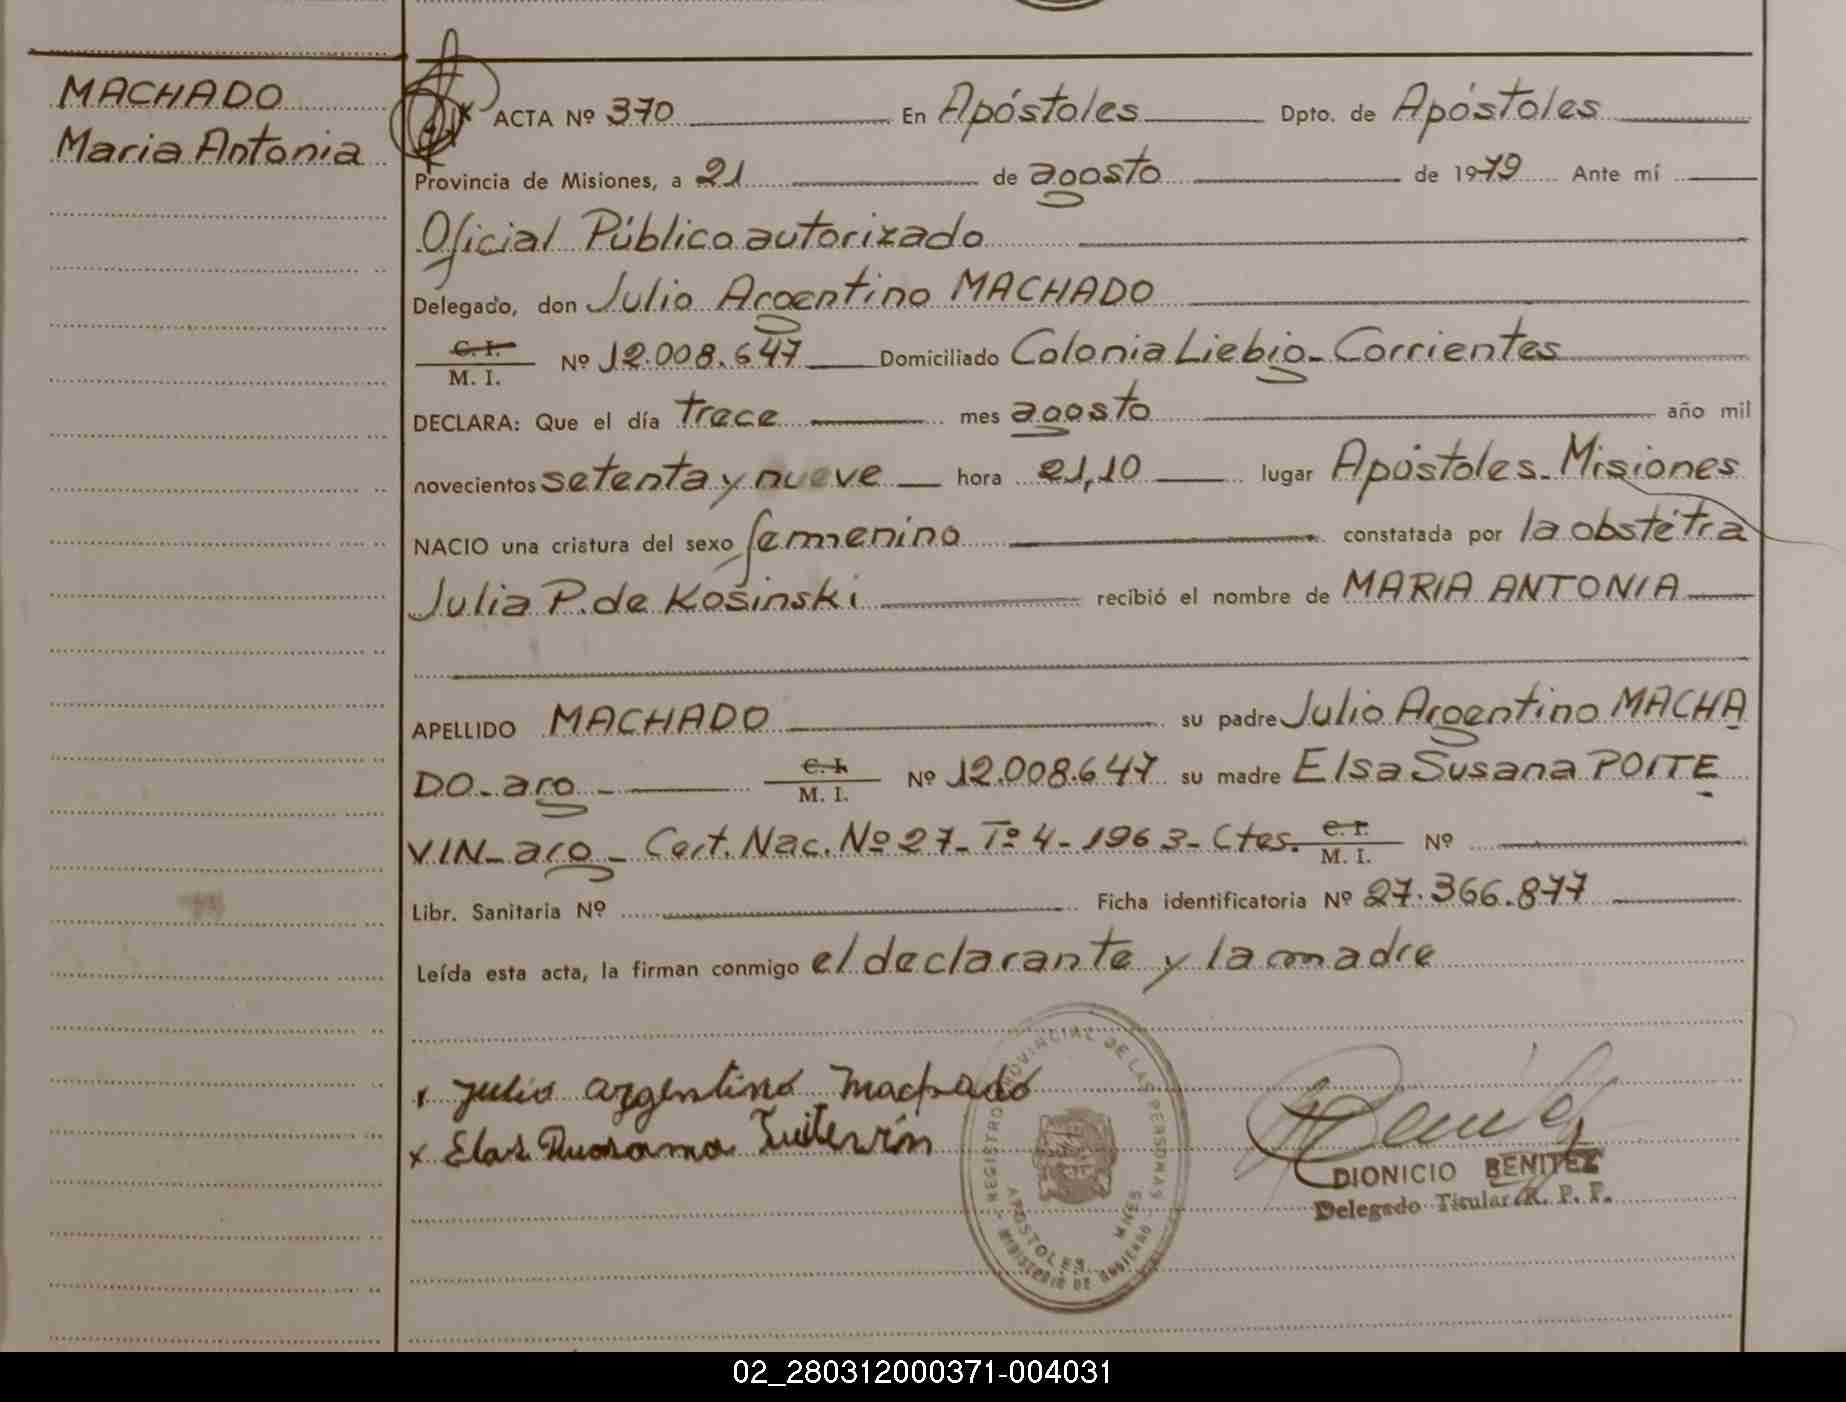 MACHADO
Maria Antonia
ACTA Nº 370 En Apóstoles Dpto. de Apóstoles
Provincia de Misiones, a 21 de agosto de 1979 Ante mí
Oficial Público autorizado
Delegado, don Julio Argentino MACHADO
C. I.
M. I. Nº 12.008.647 Domiciliado Colonia Liebig - Corrientes
DECLARA: Que el día trece mes agosto año mil
novecientos setenta y nueve hora 21,10 lugar Apóstoles - Misiones
NACIO una criatura del sexo femenino constatada por la obstétra
Julia P. de Kosinski recibió el nombre de MARIA ANTONIA
APELLIDO MACHADO su padre Julio Argentino MACHA
DO - arg - C. I. M. I. Nº 12.008.647 su madre Elsa Susana POITE
VIN - arg - Cert. Nac. Nº 27 - Tº 4 - 1963 - Ctes. C. I. M. I. Nº
Libr. Sanitaria Nº Ficha identificatoria Nº 27.366.877
Leída esta acta, la firman conmigo el declarante y la madre
x Julio Argentino Machado
x
REGISTRO PROVINCIAL DE LAS PERSONAS
APOSTOLES MNES.
MINISTERIO DE GOBIERNO
DIONICIO BENITEZ
Delegado Titular R. P. P.
02_280312000371-004031